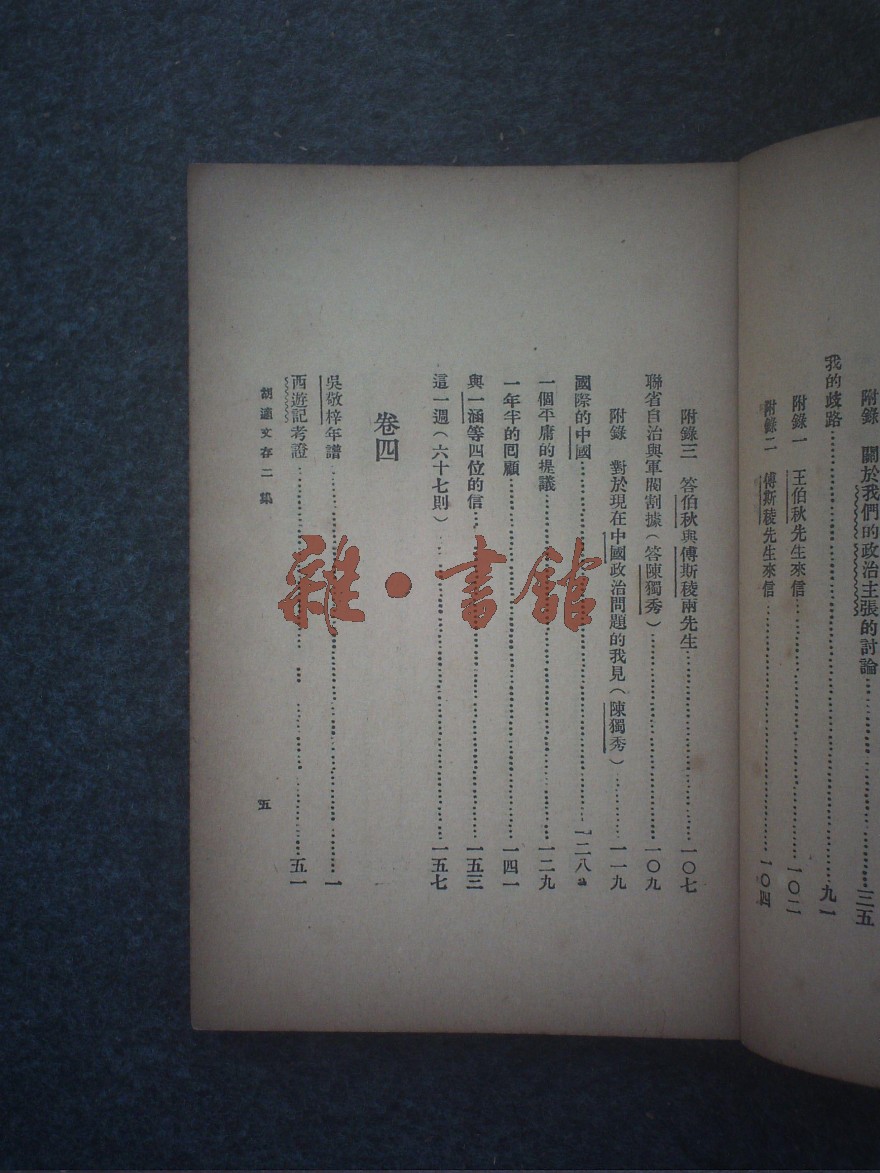 附錄 關於我們的政治主張的討論……三五
我的歧路……九一
附錄一 王伯秋先生來信……一〇二
附錄二 傅斯稜先生來信……一〇四
附錄三 答伯秋與傅斯稜兩先生……一〇七
聯省自治與軍閥割據（答陳獨秀）……一〇九
附錄 對於現在中國政治問題的我見（陳獨秀）……一一九
國際的中國……一二八
一個平庸的提議……一二九
一年半的回顧……一四一
與一涵等四位的信……一五三
這一週（六十七則）……一五七
卷四
吳敬梓年譜……一
西遊記考證……五一
胡適文存二集
五
雜·書館